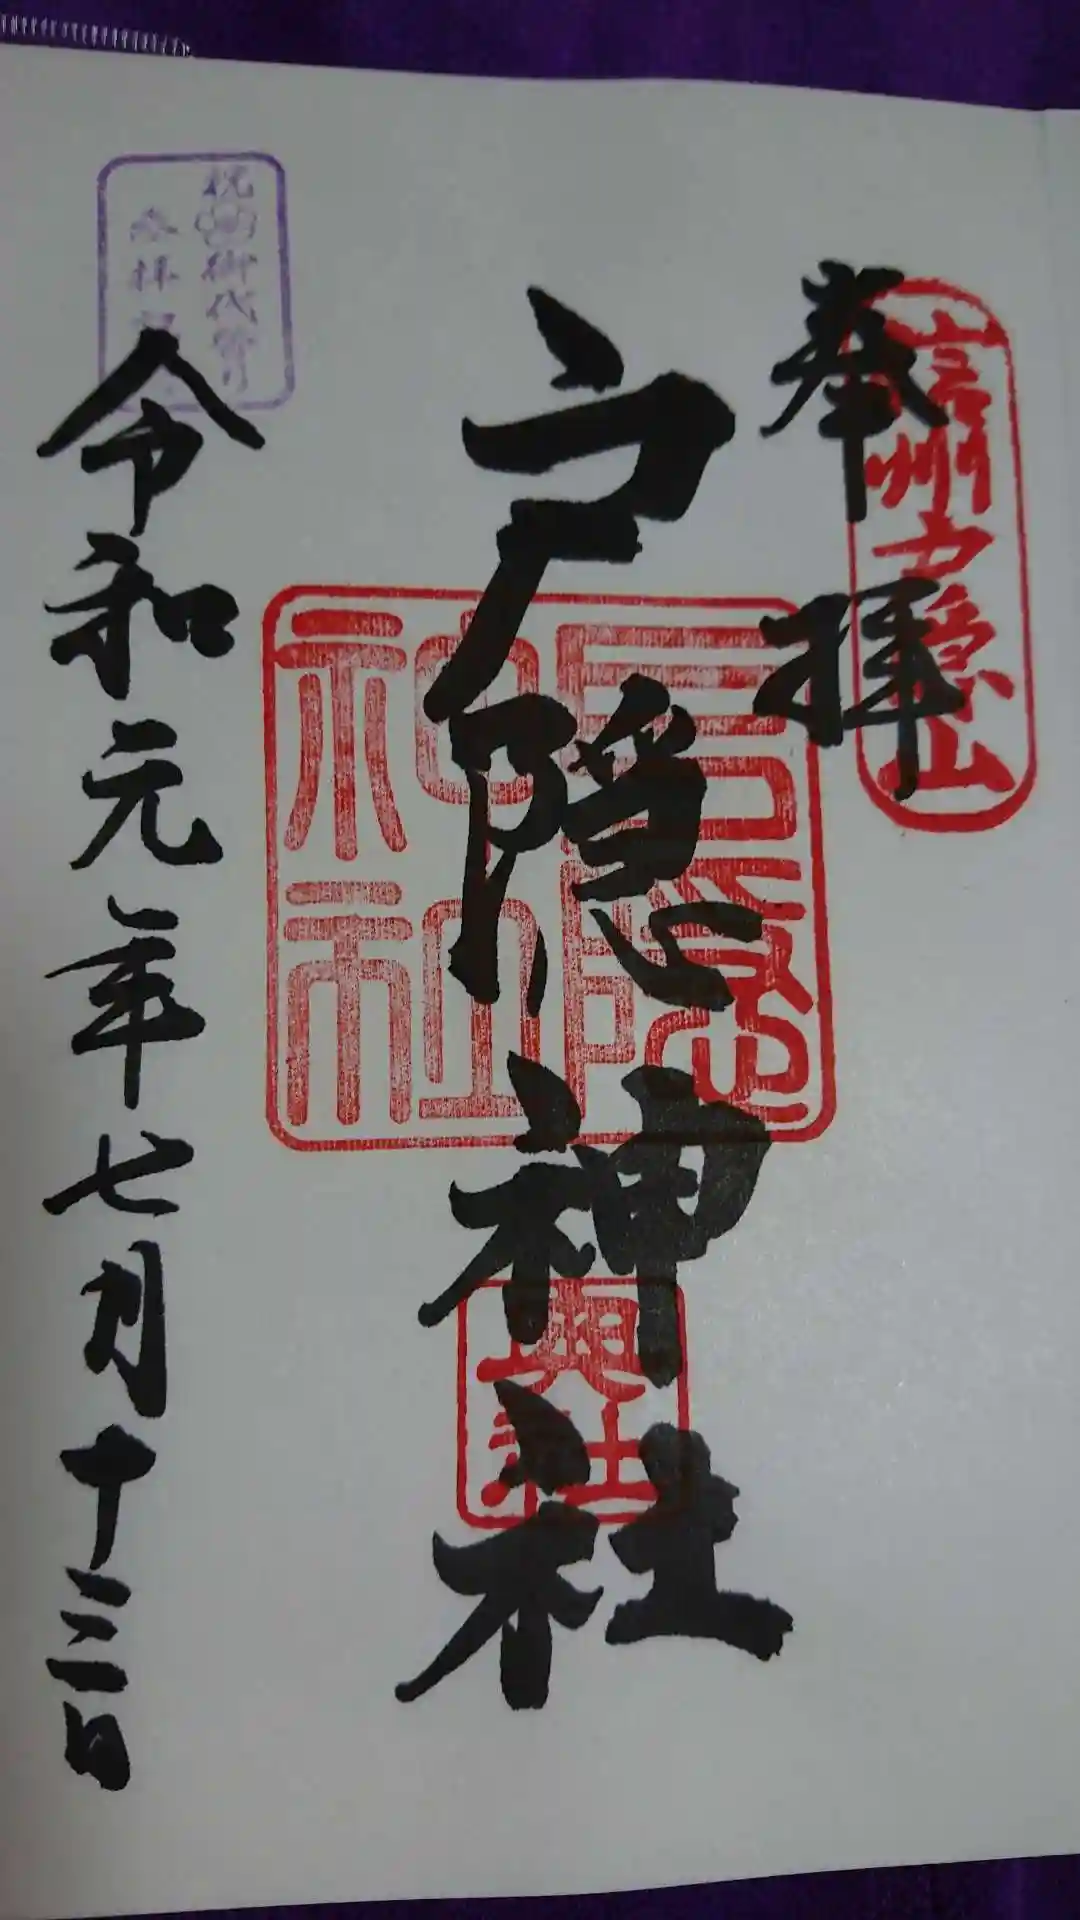 奉拝
信州戸隠山
戸隠神社
戸隠
神社
奥社
令和元年七月十三日
祝 御代替り
参拝記